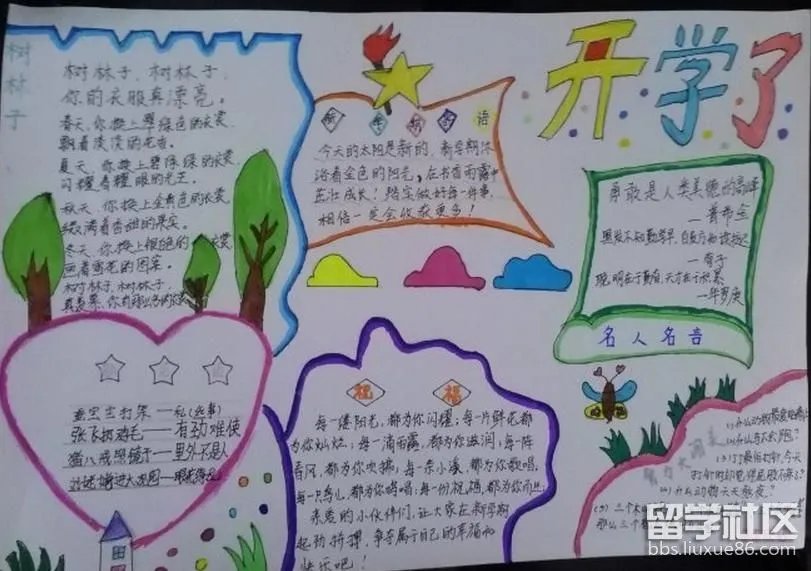 开学了
树林子
树林子,树林子,
你的衣服真漂亮。
春天,你换上翠绿色的衣裳,
飘着淡淡的花香。
夏天,你换上碧绿绿的衣裳
闪耀着耀眼的光芒。
秋天,你换上金黄色的衣裳
缀满着香甜的果实。
冬天,你换上银色的衣裳
画着雪花的图案。
树林子,树林子,
新学期
语
今天的太阳是新的,新学期沐
浴着金色的阳光,在书香雨露中
茁壮成长!踏实做好每一件事,
相信一定会收获更多!
勇敢是人类美德的高峰
—普希金
黑发不知勤学早,白首方知读书迟
聪明在于勤奋,天才在于积累
—华罗庚
名人名言
蚕宝宝打架—私(丝)事
张飞扔鸡毛—有劲难使
猪八戒照镜子—里外不是人
刘姥姥进大观园—眼花缭乱
祝福
每一缕阳光,都为你闪耀;每一片鲜花都
为你灿烂;每一滴雨露,都为你滋润;每一阵
春风,都为你吹拂;每一条小溪,都为你歌唱,
每一只鸟儿,都为你鸣唱;每一份祝福,都为你而
亲爱的小伙伴们,让大家在新学期
起劲拼搏,争夺属于自己的幸福和
快乐吧!
(2)什么书不会跑?
打针时却
(4)什么动物天天熬夜?
(5)三个
那么三个
留学社区
bbs.liuxue86.com